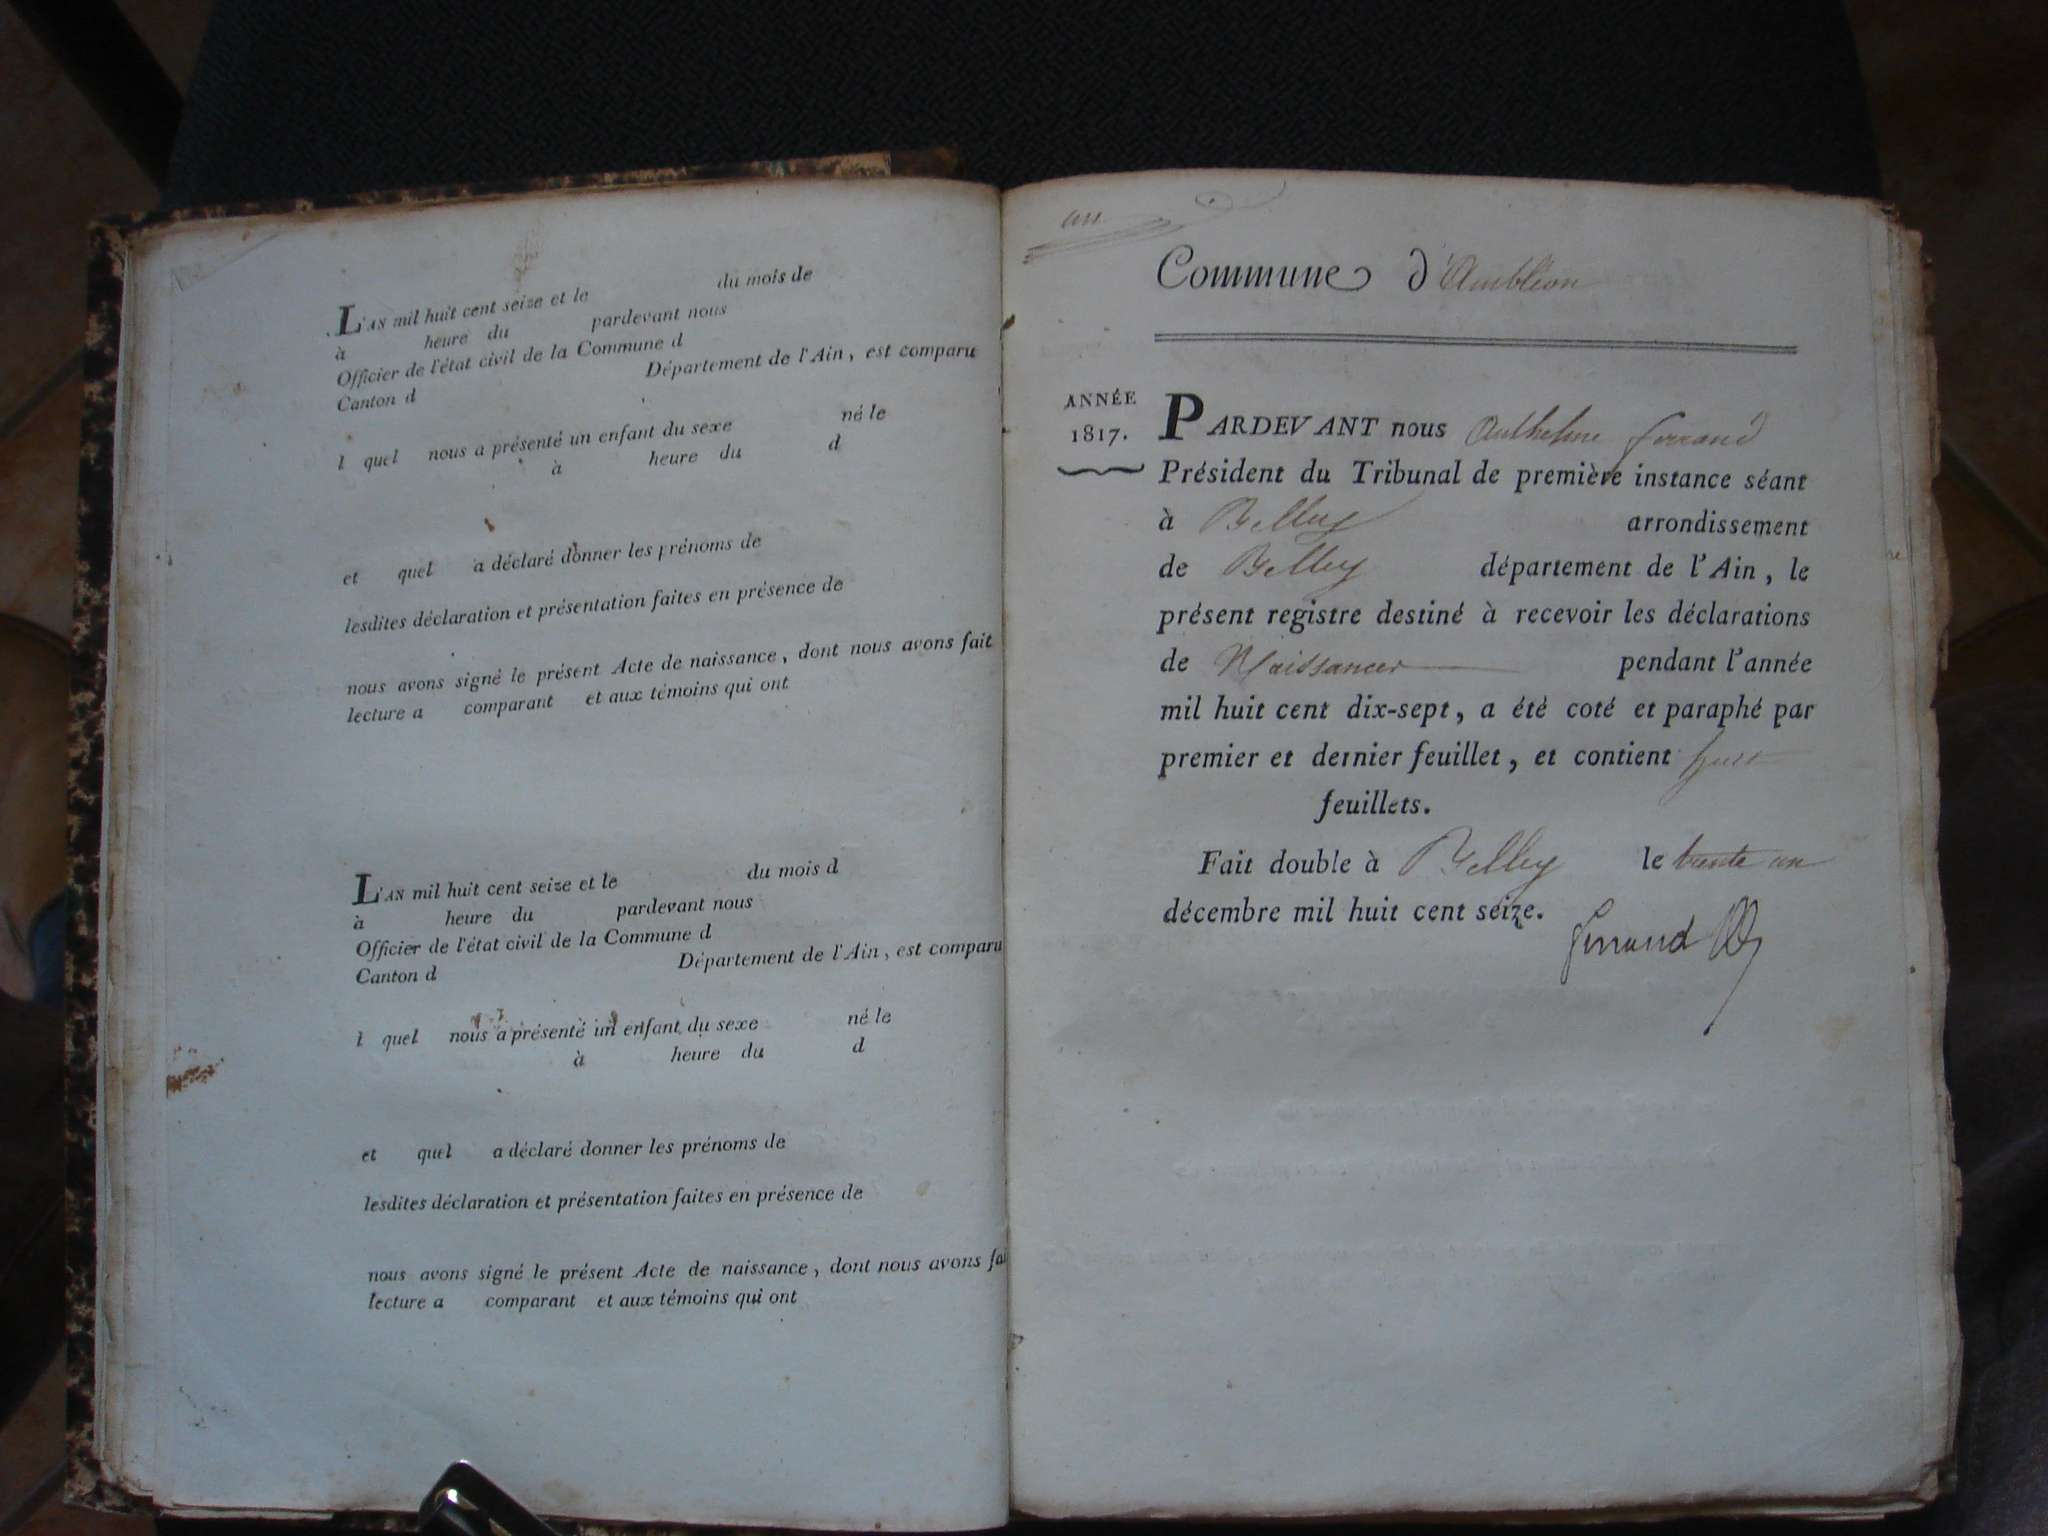 L'AN mil huit cent seize et le du mois de
à heure du pardevant nous
Officier de l'état civil de la Commune d
Canton d Département de l'Ain, est comparu
l quel nous a présenté un enfant du sexe né le
à heure du d
et quel a déclaré donner les prénoms de
lesdites déclaration et présentation faites en présence de
nous avons signé le présent Acte de naissance, dont nous avons fait
lecture a comparant et aux témoins qui ont
L'AN mil huit cent seize et le du mois d
à heure du pardevant nous
Officier de l'état civil de la Commune d
Canton d Département de l'Ain, est comparu
l quel nous a présenté un enfant du sexe né le
à heure du d
et quel a déclaré donner les prénoms de
lesdites déclaration et présentation faites en présence de
nous avons signé le présent Acte de naissance, dont nous avons fai
lecture a comparant et aux témoins qui ont
Commune d'Ambléon
ANNÉE
1817.
PARDEVANT nous Anthelme ferrand
Président du Tribunal de première instance séant
à Belley arrondissement
de Belley département de l'Ain, le
présent registre destiné à recevoir les déclarations
de Naissances pendant l'année
mil huit cent dix-sept, a été coté et paraphé par
premier et dernier feuillet, et contient
feuillets.
Fait double à Belley le trente un
décembre mil huit cent seize.
ferrand